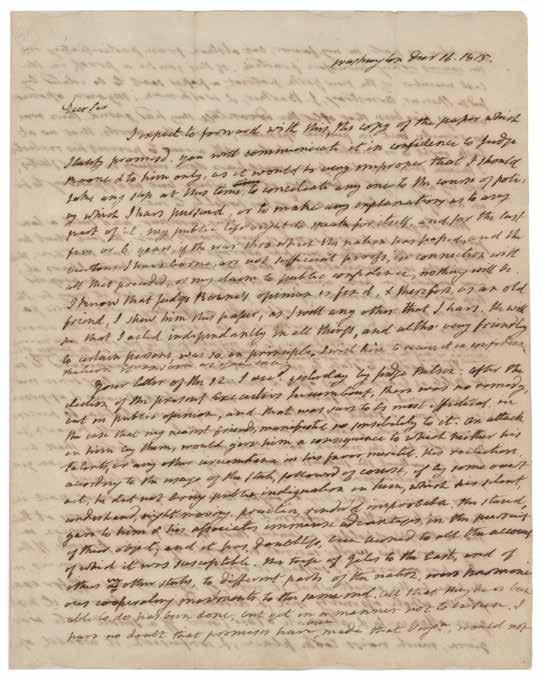 Washington Decr 16. 1815.
Dear Sir
I expect to forward with this, the copy of the paper which
I lately promised, you will communicate it in confidence to Judge
Roane & to him only, as it would be very improper that I should
take any step at this time, to conciliate any one to the course of poli-
cy which I have pursued or to make any explanation as to any
part of it. my public life ought to speak for itself, and for the last
five or 6 years, if the war thro which the nation has passed, and the
burdens I have borne, are not sufficient proofs, in connection with
all that preceded, of my claim to public confidence, nothing will be.
I know that Judge Roane's opinion is fixed, & therefore as an old
friend, I shew him this paper, as I will any other that I have. He will
see that I acted independantly in all things, and altho very friendly
to certain persons, was so on principle. I wish him to receive it in confidence
Your letter of the 12. I recd. yesterday by Judge Nelson. After the
election of the present Executive incumbent, there was no remedy,
but in public opinion, and that was sure to be most effectual in
the case that my nearest friends, manifested no sensibility to it. An attack
on him by them, would give him a consequence to which neither his
talents, or any other circumstance in his favor, merited. His reelection
according to the usage of the State, followed of course, if by some overt
act, he did not bring public indignation on him, which his silent
underhand, nightly practices, rendered improbable. This stand,
gave to him & his associates immense advantages, in the pursuit
of their object, and it has, doubtless, been turned to all the account
of which it was susceptible. The trips of Giles to the East, and of
others to other states, to different parts of the nation, were harmoni-
ous cooperating movements to the same end. All that they have been
able to do has been done, but yet in a manner not to
have no doubt that promises have been made that Virga. would not